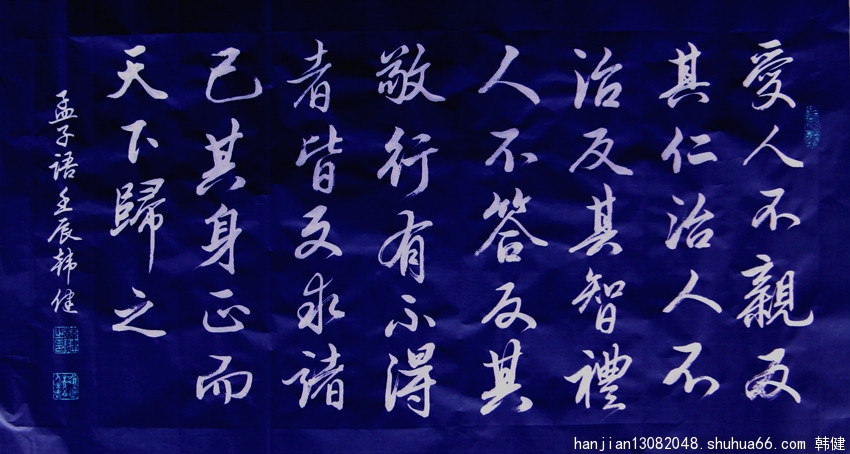 愛人不親反
其仁治人不
治反其智禮
人不答反其
敬行有不得
者皆反求諸
己其身正而
天下歸之
孟子语壬辰韩健
hanjian13082048.shuhua66.com 韩健